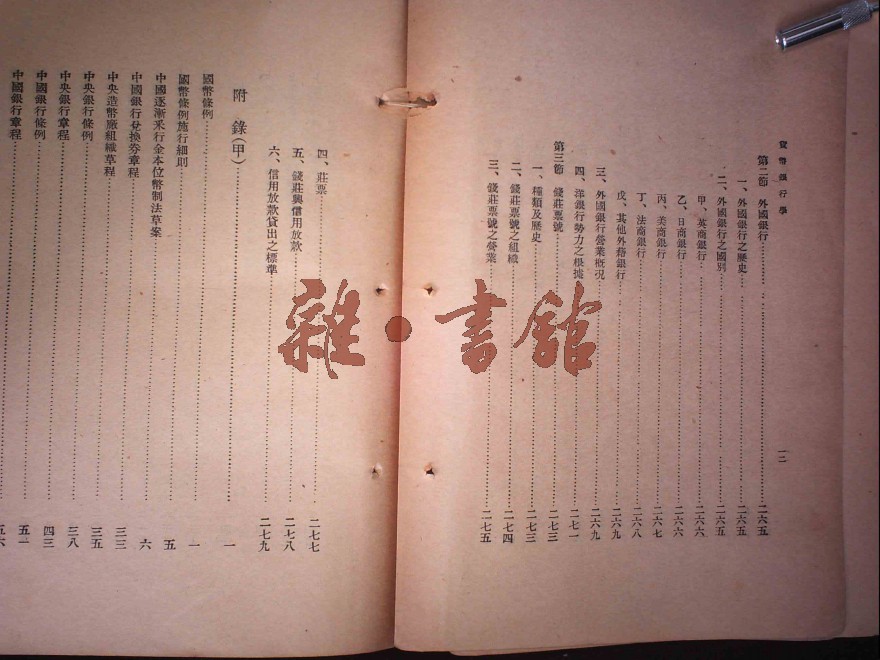 貨幣銀行學
一二
第二節 外國銀行……二六五
一、外國銀行之歷史……二六五
二、外國銀行之國別……二六五
甲、英商銀行……二六六
乙、日商銀行……二六六
丙、美商銀行……二六七
丁、法商銀行……二六八
戊、其他外商銀行……二六九
三、外國銀行營業概况……二六九
四、洋銀行勢力之根據……二七一
第三節 錢莊票號……二七三
一、種類及歷史……二七三
二、錢莊票號之組織……二七四
三、錢莊票號之營業……二七五
四、莊票……二七七
五、錢莊與信用放款……二七八
六、信用放款貸出之標準……二七九
附 錄(甲)……一
國幣條例……一
國幣條例施行細則……五
中國逐漸釆行金本位幣制法草案……六
中國銀行兌換券章程……三三
中央造幣廠組織草程……三五
中央銀行條例……三八
中央銀行章程……四三
中國銀行條例……五一
中國銀行章程……五六
雜·書館